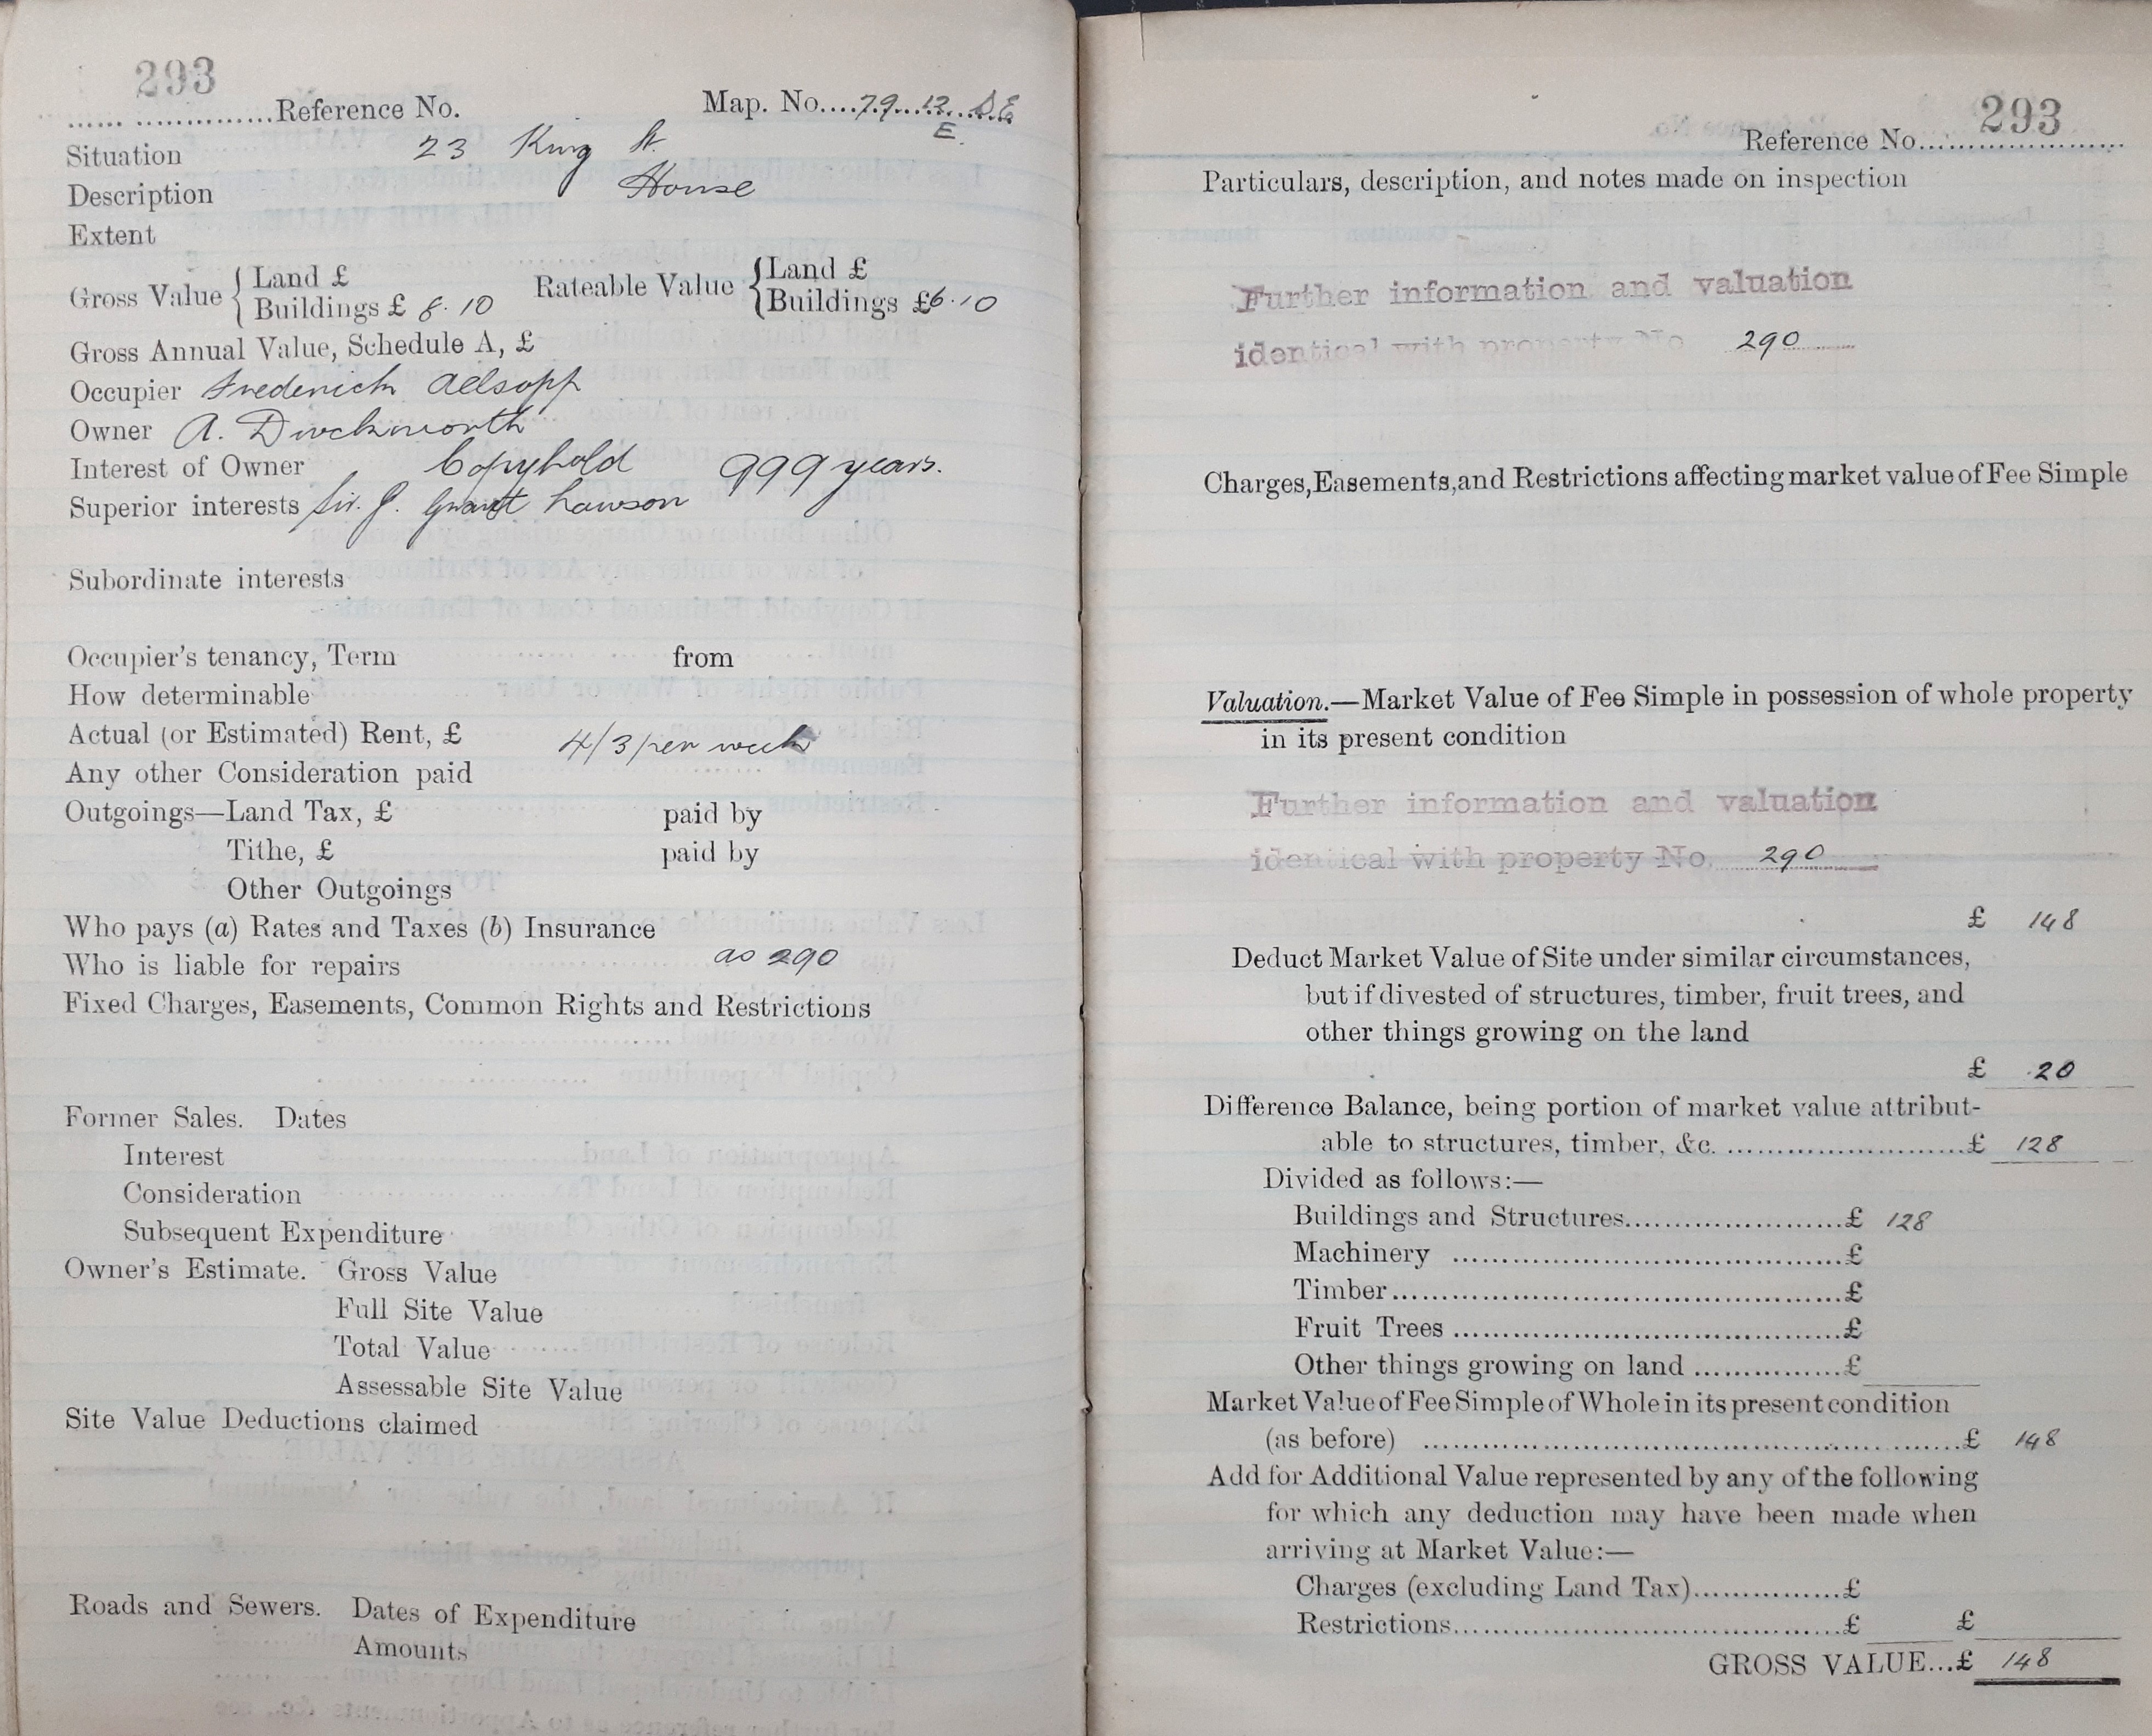 293
Reference No. Map. No....79...12...D.E.
E.
Situation 23 King St.
Description House
Extent
Gross Value { Land £ Rateable Value { Land £
Buildings £ 8.10 Buildings £6.10
Gross Annual Value, Schedule A, £
Occupier Frederick Allsopp
Owner A. Duckworth
Interest of Owner Copyhold 999 years.
Superior interests Sir. J. Grant Lawson
Subordinate interests
Occupier's tenancy, Term from
How determinable
Actual (or Estimated) Rent, £ 4/3 per week
Any other Consideration paid
Outgoings—Land Tax, £ paid by
Tithe, £ paid by
Other Outgoings
Who pays (a) Rates and Taxes (b) Insurance
Who is liable for repairs as 290
Fixed Charges, Easements, Common Rights and Restrictions
Former Sales. Dates
Interest
Consideration
Subsequent Expenditure
Owner's Estimate. Gross Value
Full Site Value
Total Value
Assessable Site Value
Site Value Deductions claimed
Roads and Sewers. Dates of Expenditure
Amounts
293
Reference No.
Particulars, description, and notes made on inspection
Further information and valuation
identical with property No. 290
Charges, Easements, and Restrictions affecting market value of Fee Simple
Valuation.—Market Value of Fee Simple in possession of whole property
in its present condition
Further information and valuation
identical with property No. 290
£ 148
Deduct Market Value of Site under similar circumstances,
but if divested of structures, timber, fruit trees, and
other things growing on the land
£ 20
Difference Balance, being portion of market value attribut-
able to structures, timber, &c. ........................£ 128
Divided as follows:—
Buildings and Structures........................£ 128
Machinery ........................£
Timber........................£
Fruit Trees ........................£
Other things growing on land ...............£
Market Value of Fee Simple of Whole in its present condition
(as before) ........................£ 148
Add for Additional Value represented by any of the following
for which any deduction may have been made when
arriving at Market Value:—
Charges (excluding Land Tax)...............£
Restrictions........................£ £
GROSS VALUE...£ 148